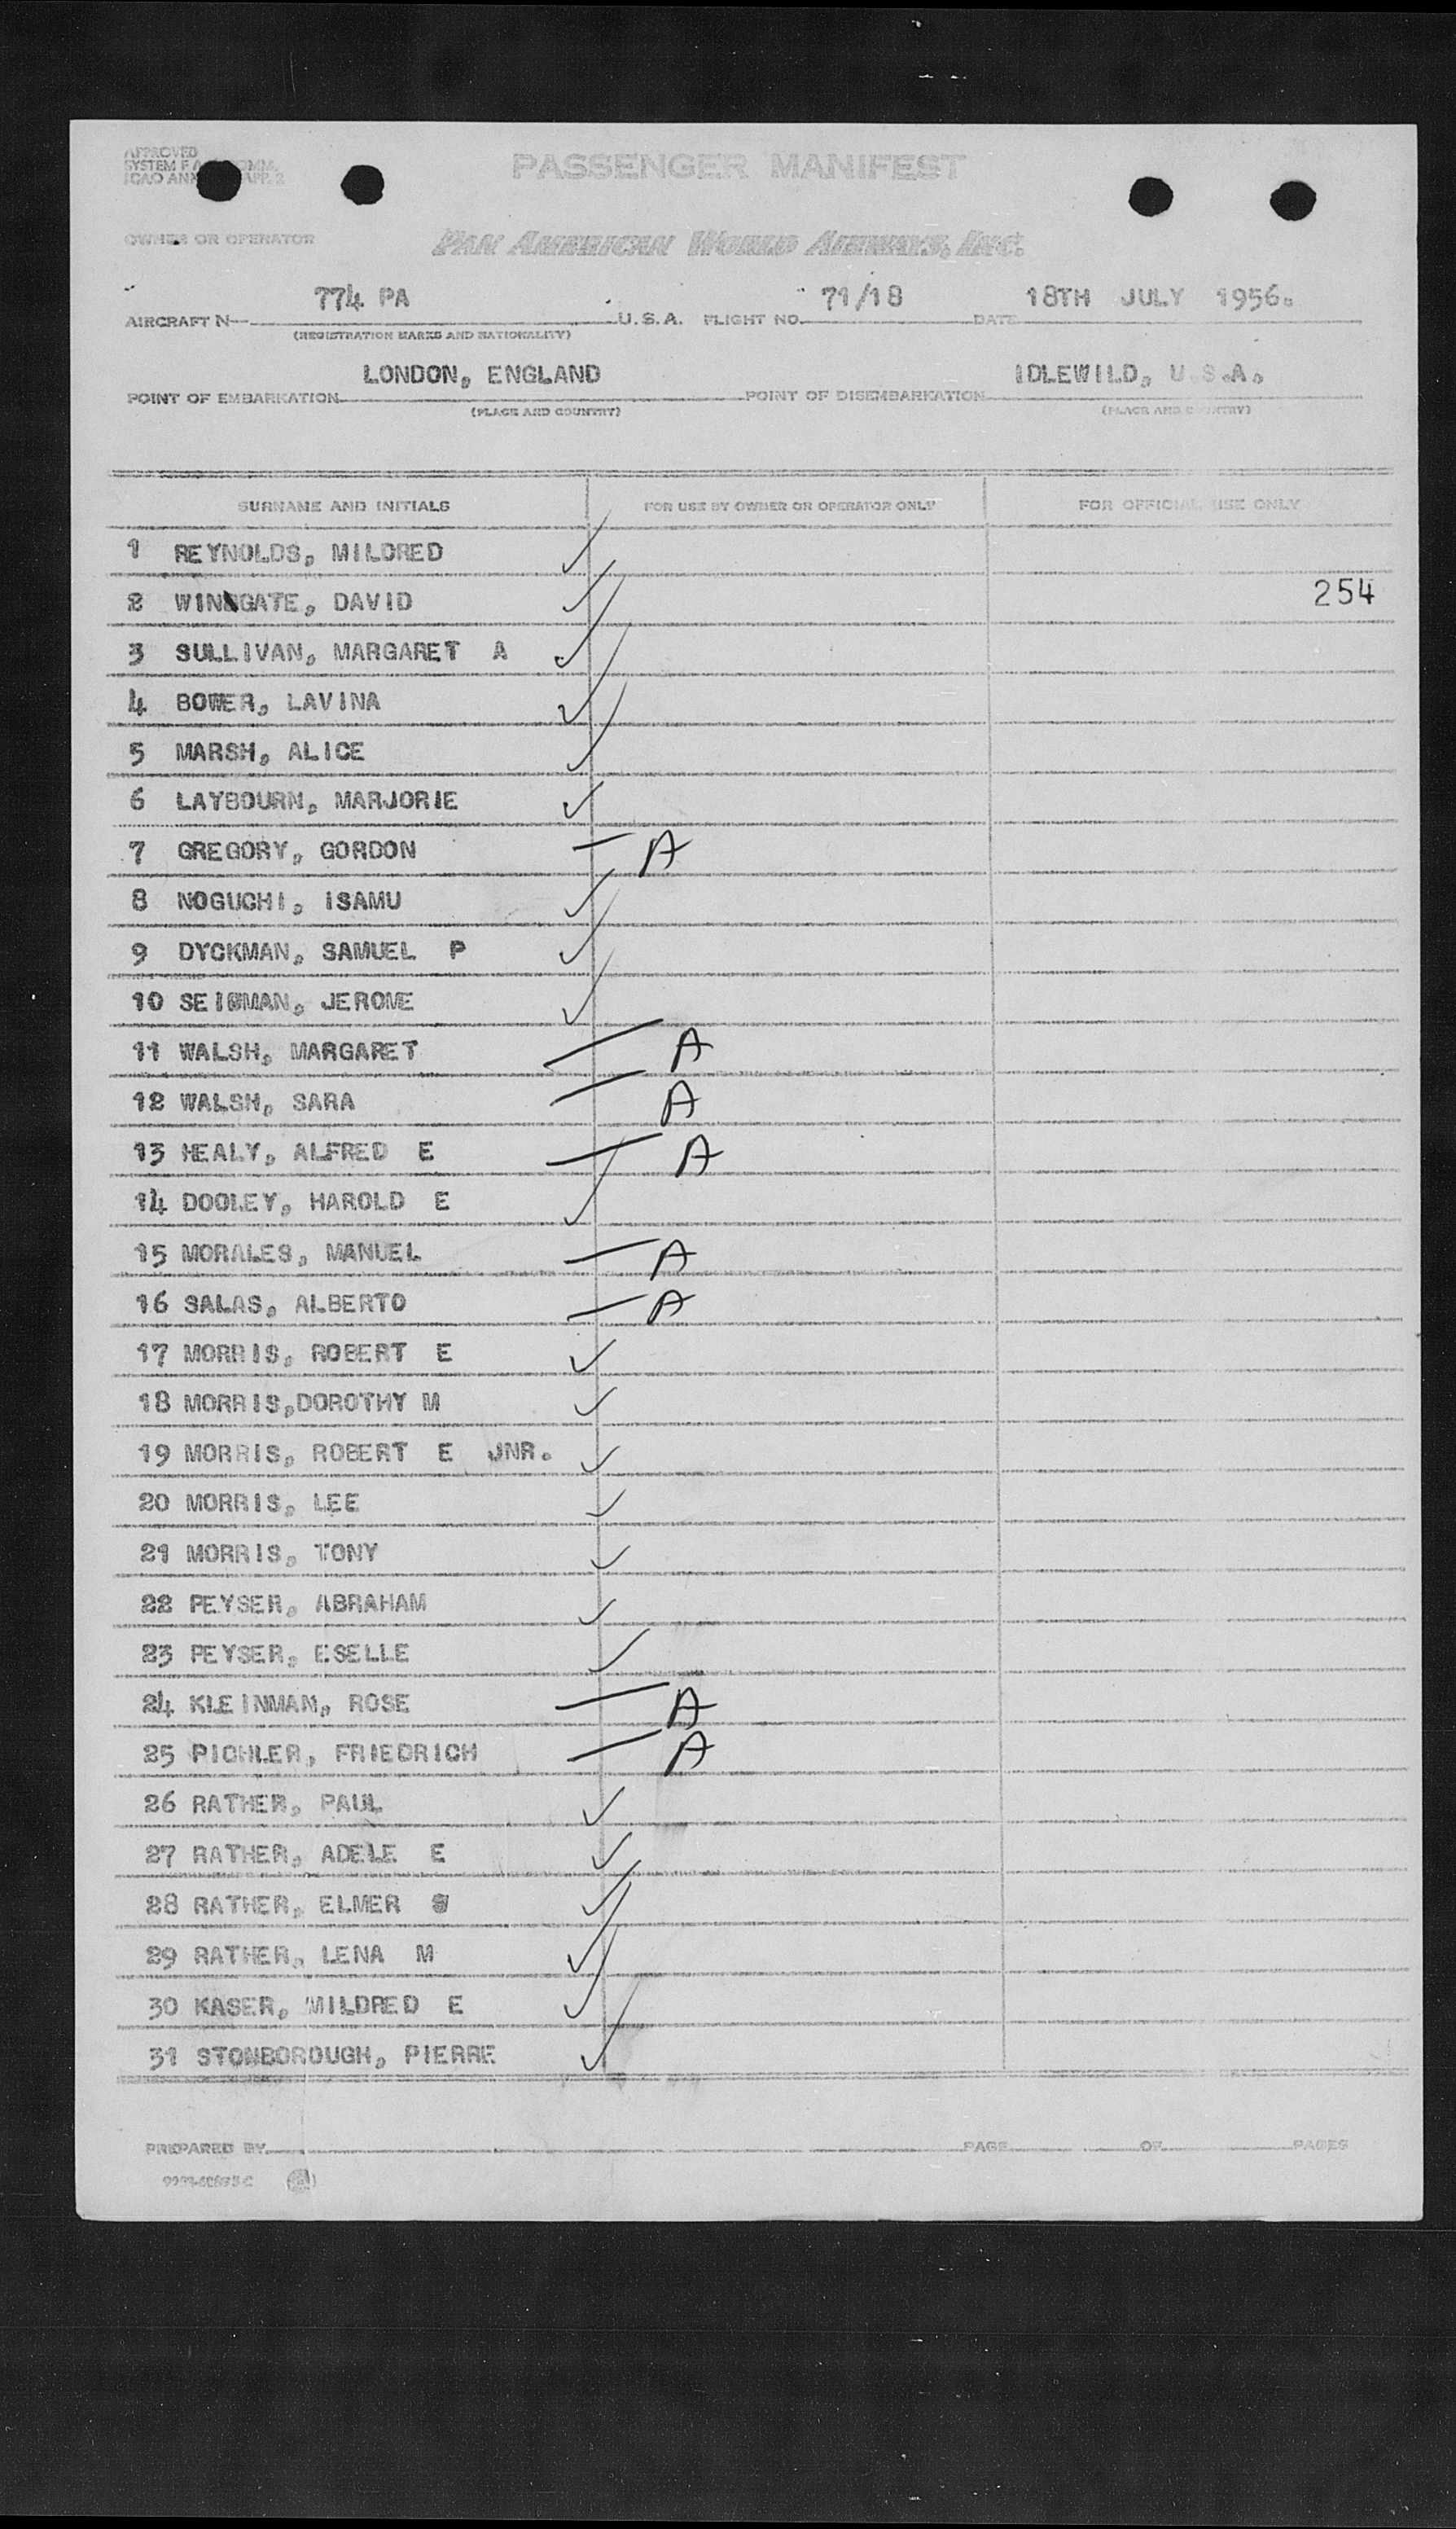 APPROVED
SYSTEM F
ICAO
PASSENGER MANIFEST
OWNER OR OPERATOR
PAN AMERICAN WORLD AIRWAYS, INC.
774 PA 71/18 18TH JULY 1956.
AIRCRAFT N— U.S.A. FLIGHT NO. DATE
(REGISTRATION MARKS AND NATIONALITY)
LONDON, ENGLAND IDLEWILD, U.S.A.
POINT OF EMBARKATION POINT OF DISEMBARKATION
(PLACE AND COUNTRY) (PLACE AND COUNTRY)
SURNAME AND INITIALS FOR USE BY OWNER OR OPERATOR ONLY FOR OFFICIAL USE ONLY
1 REYNOLDS, MILDRED ✓
2 DAVID ✓ 254
3 SULLIVAN, MARGARET A ✓
4 BOWER, LAVINA ✓
5 MARSH, ALICE ✓
6 LAYBOURN, MARJORIE ✓
7 GREGORY, GORDON — A
8 NOGUCHI, ISAMU ✓
9 DYCKMAN, SAMUEL P ✓
10 JEROME ✓
11 WALSH, MARGARET — A
12 WALSH, SARA — A
13 HEALY, ALFRED E — A
14 DOOLEY, HAROLD E ✓
15 MORALES, MANUEL — A
16 SALAS, ALBERTO — A
17 MORRIS, ROBERT E ✓
18 MORRIS,DOROTHY M ✓
19 MORRIS, ROBERT E JNR. ✓
20 MORRIS, LEE ✓
21 MORRIS, TONY ✓
22 PEYSER, ABRAHAM ✓
23 PEYSER, ESELLE ✓
24 KLEINMAN, ROSE — A
25 PICHLER, FRIEDRICH — A
26 RATHER, PAUL ✓
27 RATHER, ADELE E ✓
28 RATHER, ELMER ✓
29 RATHER, LENA M ✓
30 KASER, MILDRED E ✓
31 STONBOROUGH, PIERRE ✓
PREPARED BY PAGE OF PAGES